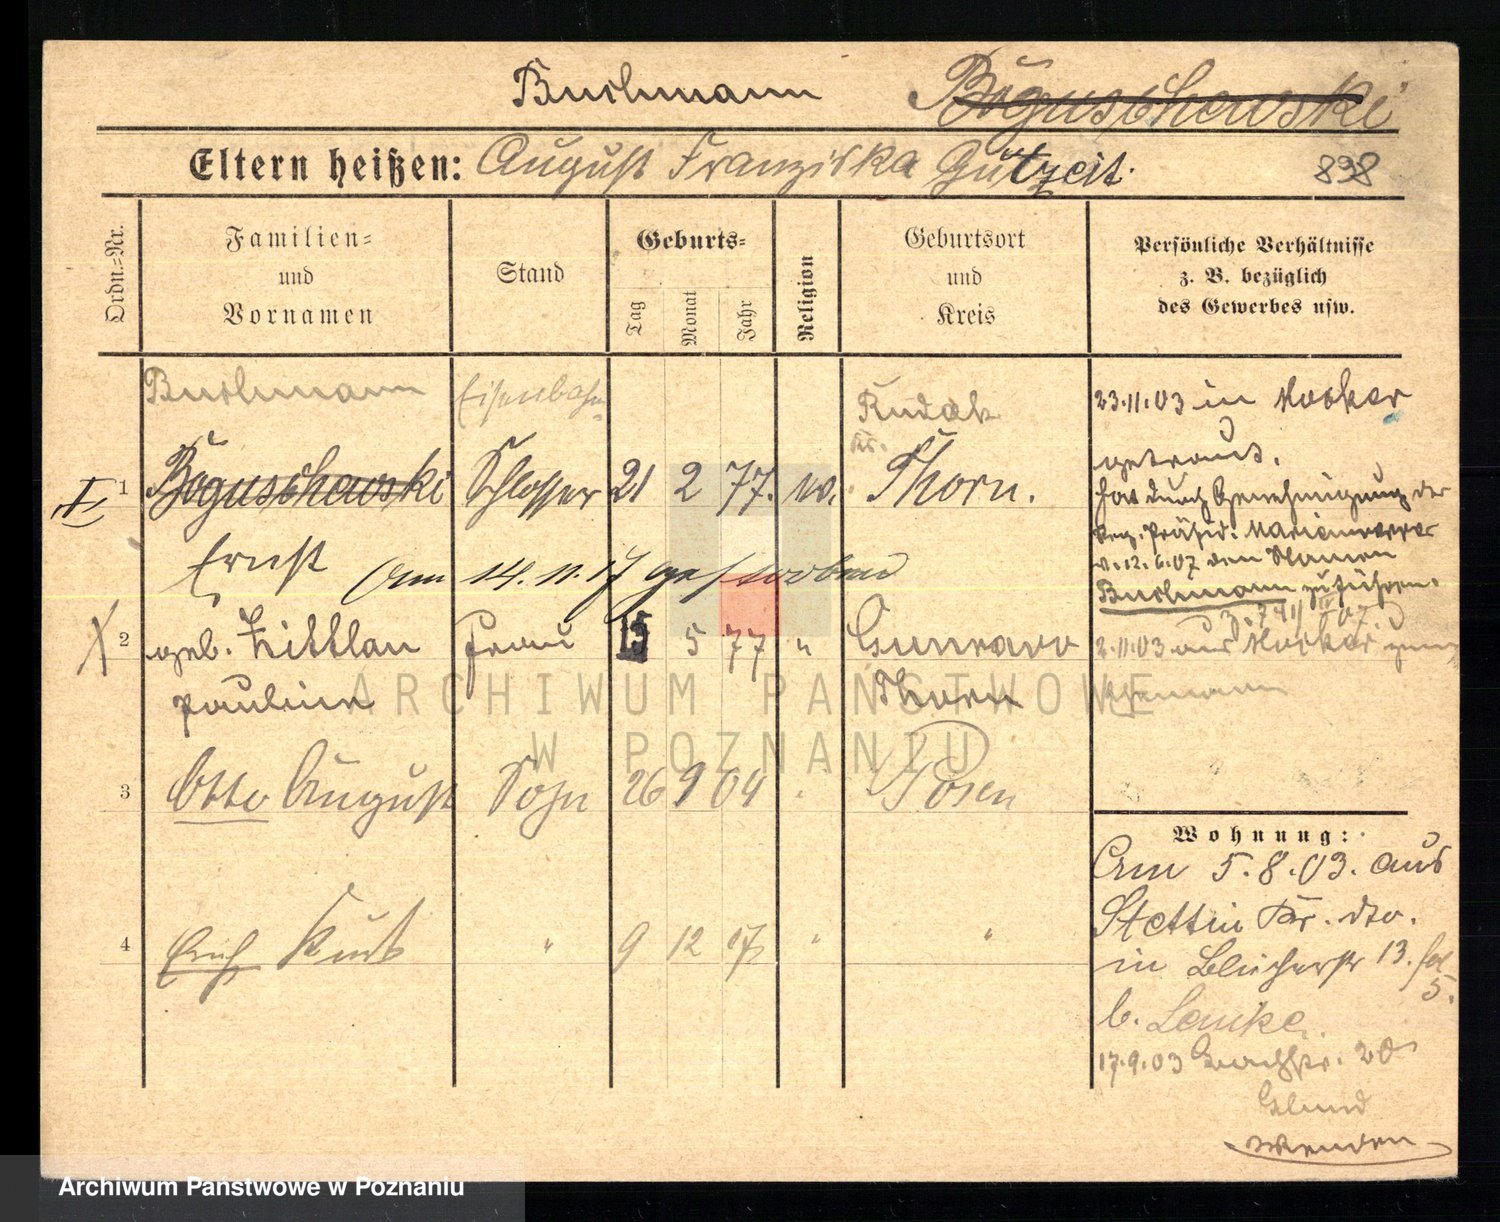 Buchmann Boguschewski
Eltern heißen: August Franziska Gutzeit. 898
Ordn.=Nr.
Familien=
und
Vornamen
Stand
Geburts=
Tag
Monat
Jahr
Religion
Geburtsort
und
Kreis
Persönliche Verhältnisse
z. B. bezüglich
des Gewerbes usw.
Buchmann Eisenbahn Rudak
Kr.
I 1 Boguschewski Schlosser 21 2 77. ev. Thorn.
Ernst am 14. 11. 17 gestorben
23.11.03 in Mocker
getraut.
hat durch Genehmigung der
Reg. Präsid. Marienwerder
v. 12.6.07 den Namen
Buchmann zu führen.
X 2 geb. Zittlau Frau 15 5 77 "
Pauline Thorn
2.11.03 aus Mocker zum
Ehemann
3 Otto August Sohn 26 9 04 " Posen
4 Erich Kurt " 9 12 " "
Wohnung:
Am 5.8.03. aus
Stettin Kr. dto.
in Blücherstr 13.
5.
b. Lemke.
17.9.03 20
Wenden
ARCHIWUM PAŃSTWOWE
W POZNANIU
Archiwum Państwowe w Poznaniu